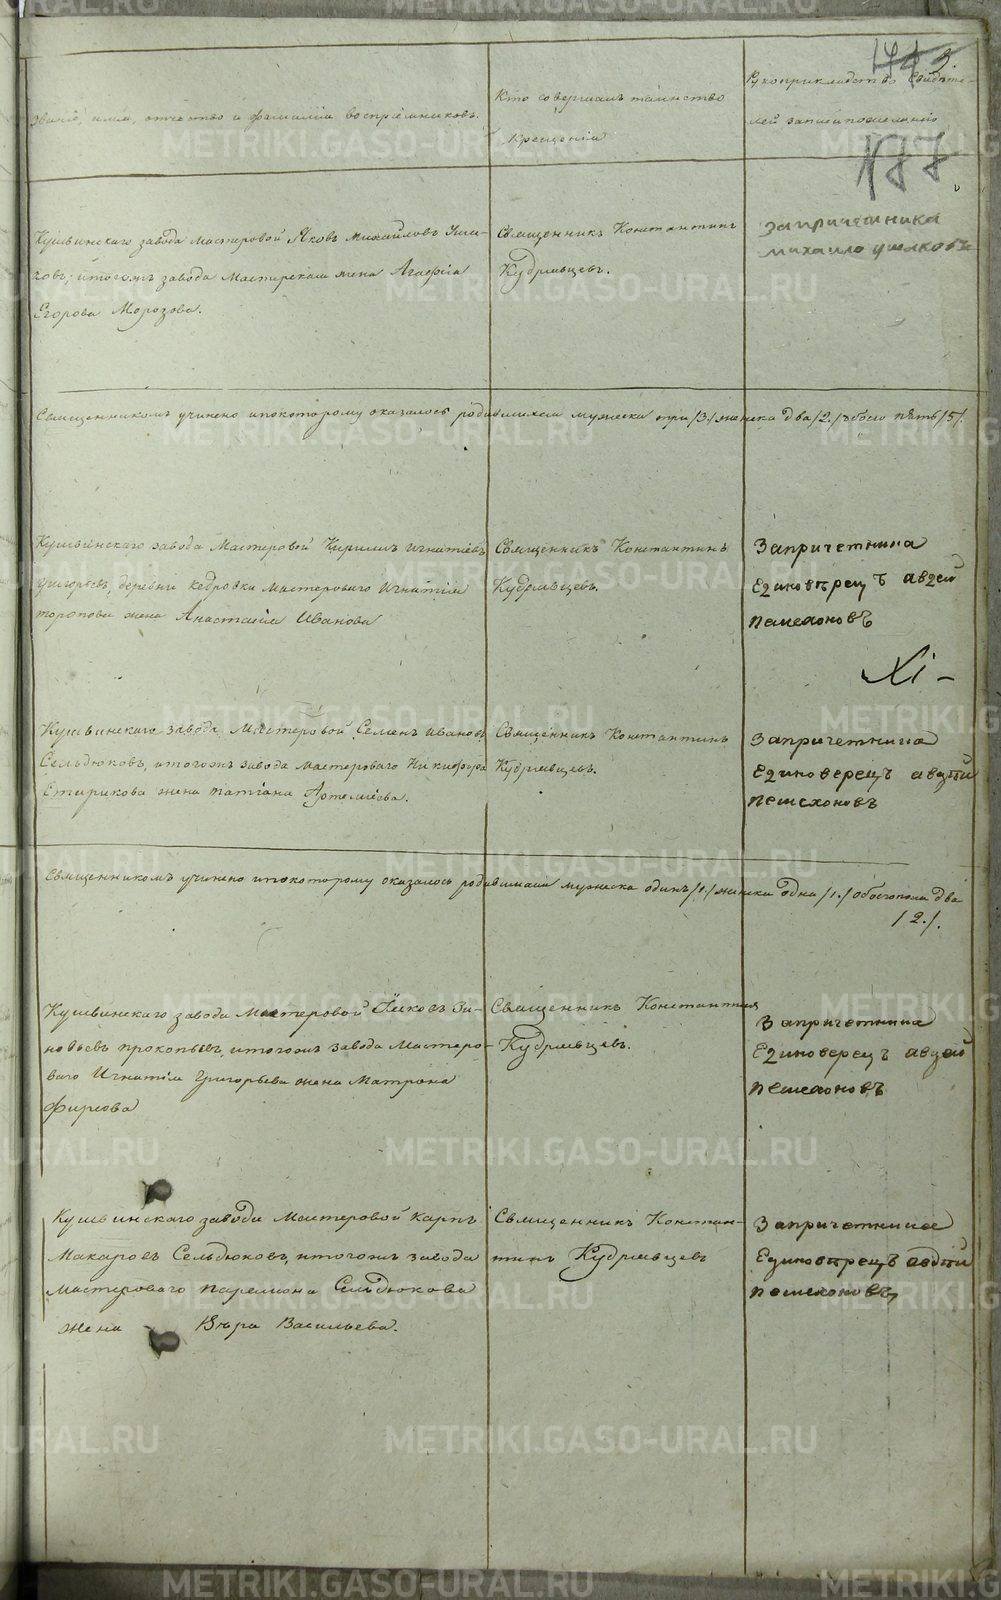 149 3.
177
Званіе, имя, отчество и фамилія воспріемниковъ.
Кто совершалъ таинство
крещенія
Рукоприкладство свидѣте-
лей записи по желанію
Кушвинскаго завода мастеровой Яковъ Михайловъ Уша-
ковъ, и тогожъ завода мастерская жена Агафія
Егорова Морозова.
Священникъ Константинъ
Кудрявцевъ.
За причетника
михаило ушаковъ
Священникомъ учинено и по которому оказалось родившихся мужеска три /3/ женска два /2./ обоего пять /5/.
Кушвинскаго завода Мастеровой Кирилъ Игнатіевъ
Григорьевъ, деревни Кедровки мастероваго Игнатія
торопова жена Анастасія Иванова
Священникъ Константинъ
Кудрявцевъ.
За причетника
Единовѣрецъ авдей
пешехоновъ
XI –
Кушвинскаго завода Мастеровой Семенъ Ивановъ
Сельдюковъ, и тогожъ завода мастероваго Никифора
жена татіана Артеміева.
Священникъ Константинъ
Кудрявцевъ.
За причетника
Единоверецъ авдѣй
пешехоновъ
Священникомъ учинено и по которому оказалось родившихся мужеска одинъ /1./ женска одна /1./ обоего пола два
/2./.
Кушвинскаго завода Мастеровой Яковъ Зи-
новьевъ прокопьевъ, и тогожъ завода Мастеро-
ваго Игнатія Григорьева жена Матрона
Фирсова
Священникъ Константинъ
Кудрявцевъ.
За причетника
Единоверецъ авдей
пешехоновъ
Кушвинскаго завода Мастеровой Карпъ
Макаровъ Сельдюковъ, и тогожъ завода
мастероваго Парамона Сельдюкова
жена Вѣра Васильева.
Священникъ Констан-
тинъ Кудрявцевъ
За причетника
Единовѣрецъ авдѣй
пешехоновъ
METRIKI.GASO-URAL.RU